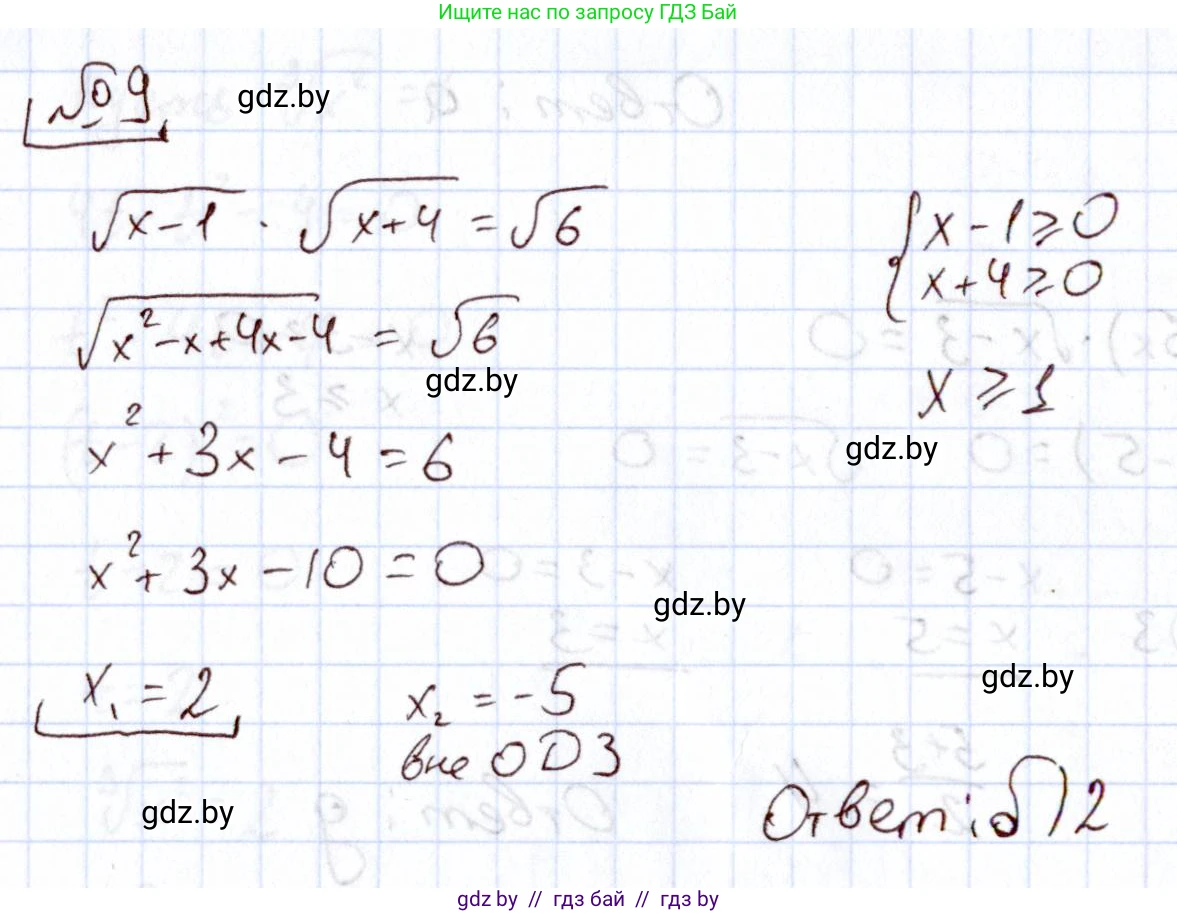 Ищите нас по запросу ГДЗ Бай
№9
gdz.by
√(x-1) · √(x+4) = √6
{ x-1⩾0
x+4⩾0
√(x²-x+4x-4) = √6
gdz.by
x ⩾ 1
gdz.by
x² + 3x - 4 = 6
x² + 3x - 10 = 0
gdz.by
gdz.by
x₁ = 2
x₂ = -5
вне ОДЗ
gdz.by
Ответ: б) 2
gdz by // гдз бай // гдз by